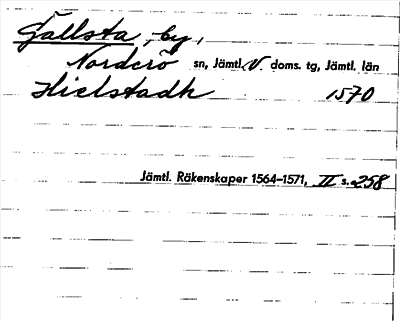 Gällsta, by,
Norderö sn, Jämtl. V. doms. tg, Jämtl. län
Hielstadh 1570
Jämtl. Räkenskaper 1564–1571, II s. 258